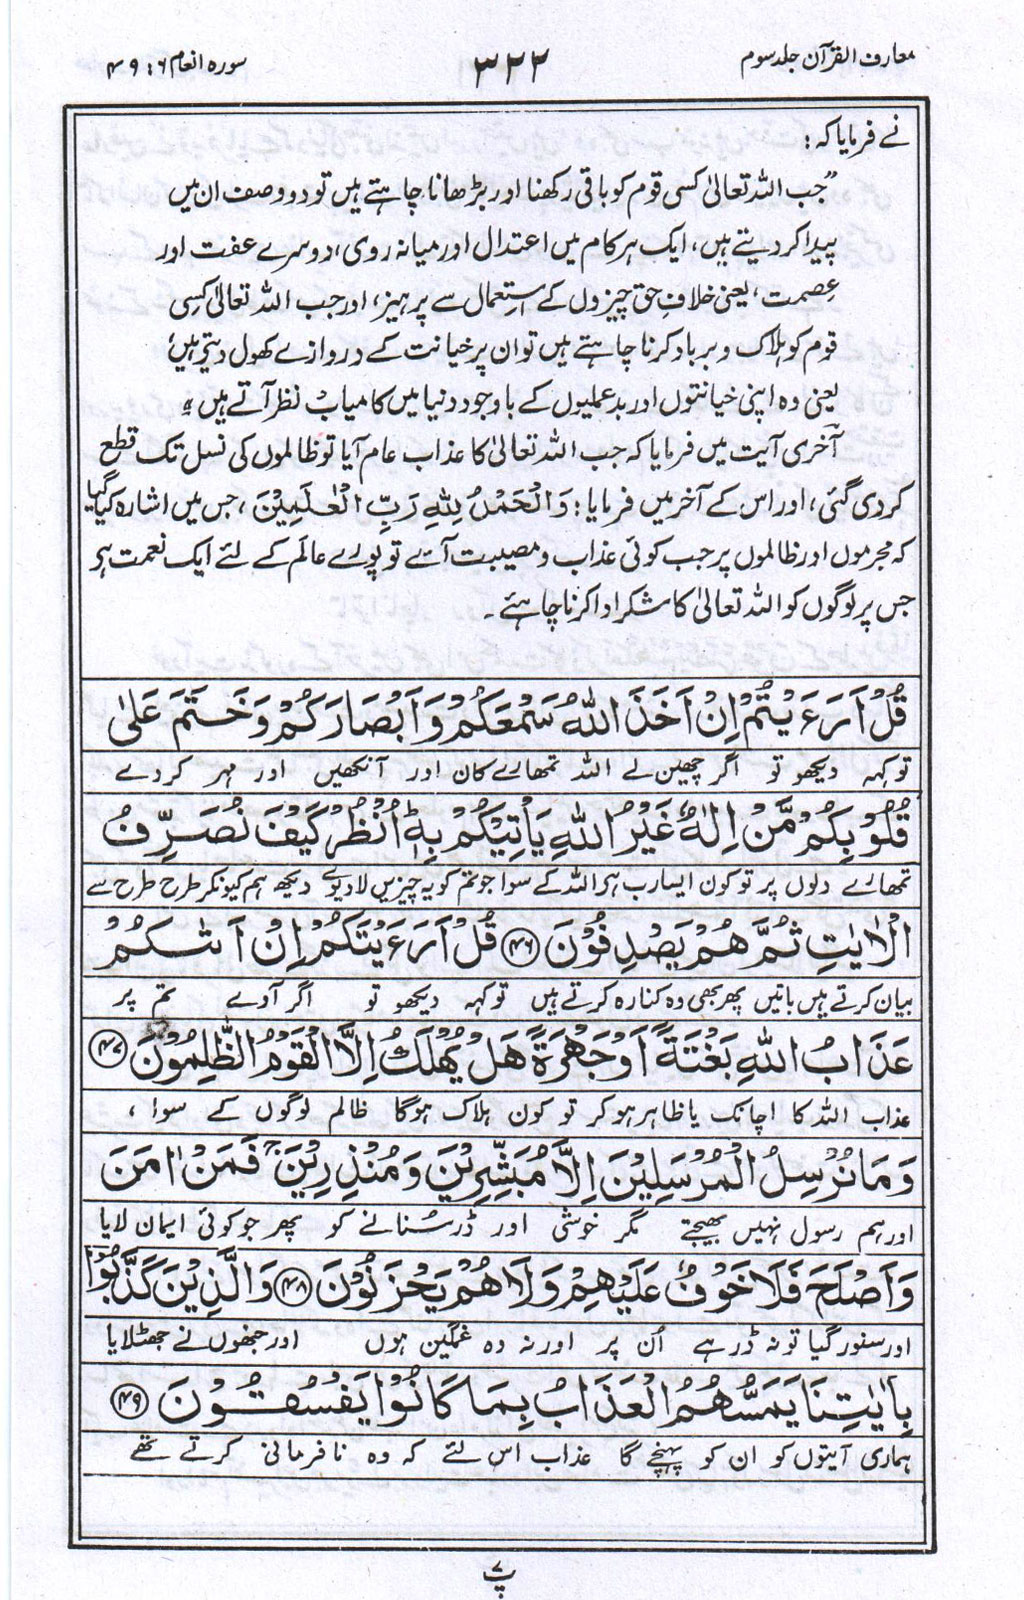 معارف القرآن جلد سوم
۳۲۲
سورہ انعام ۶: ۴۹
نے فرمایا کہ:
”جب اللہ تعالیٰ کسی قوم کو باقی رکھنا اور بڑھانا چاہتے ہیں تو دو وصف ان میں
پیدا کر دیتے ہیں، ایک ہر کام میں اعتدال اور میانہ روی، دوسرے عفت اور
عصمت، یعنی خلافِ حق چیزوں کے استعمال سے پرہیز، اور جب اللہ تعالیٰ کسی
قوم کو ہلاک و برباد کرنا چاہتے ہیں تو ان پر خیانت کے دروازے کھول دیتے ہیں،
یعنی وہ اپنی خیانتوں اور بدعملیوں کے باوجود دنیا میں کامیاب نظر آتے ہیں“
آخری آیت میں فرمایا کہ جب اللہ تعالیٰ کا عذاب عام آیا تو ظالموں کی نسل تک قطع
کر دی گئی، اور اس کے آخر میں فرمایا: وَالْحَمْدُ لِلّٰهِ رَبِّ الْعٰلَمِيْنَ، جس میں اشارہ کیا گیا
کہ مجرموں اور ظالموں پر جب کوئی عذاب و مصیبت آئے تو پورے عالَم کے لئے ایک نعمت ہے
جس پر لوگوں کو اللہ تعالیٰ کا شکر ادا کرنا چاہئے۔
قُلْ اَرَءَيْتُمْ اِنْ اَخَذَ اللّٰهُ سَمْعَكُمْ وَاَبْصَارَكُمْ وَخَتَمَ عَلٰى
تو کہہ دیکھو تو اگر چھین لے اللہ تمہارے کان اور آنکھیں اور مہر کر دے
قُلُوْبِكُمْ مَّنْ اِلٰهٌ غَيْرُ اللّٰهِ يَاْتِيْكُمْ بِهٖ ؕ اُنْظُرْ كَيْفَ نُصَرِّفُ
تمہارے دلوں پر تو کون ایسا رب ہے اللہ کے سوا جو تم کو یہ چیزیں لادیوے دیکھ ہم کیونکر طرح طرح سے
الْاٰيٰتِ ثُمَّ هُمْ يَصْدِفُوْنَ ۴۶ قُلْ اَرَءَيْتَكُمْ اِنْ اَتٰىكُمْ
بیان کرتے ہیں باتیں پھر بھی وہ کنارہ کرتے ہیں تو کہہ دیکھو تو اگر آوے تم پر
عَذَابُ اللّٰهِ بَغْتَةً اَوْ جَهْرَةً هَلْ يُهْلَكُ اِلَّا الْقَوْمُ الظّٰلِمُوْنَ ۴۷
عذاب اللہ کا اچانک یا ظاہر ہو کر تو کون ہلاک ہوگا ظالم لوگوں کے سوا ،
وَمَا نُرْسِلُ الْمُرْسَلِيْنَ اِلَّا مُبَشِّرِيْنَ وَمُنْذِرِيْنَ ۚ فَمَنْ اٰمَنَ
اور ہم رسول نہیں بھیجتے مگر خوشی اور ڈر سُنانے کو پھر جو کوئی ایمان لایا
وَاَصْلَحَ فَلَا خَوْفٌ عَلَيْهِمْ وَلَا هُمْ يَحْزَنُوْنَ ۴۸ وَالَّذِيْنَ كَذَّبُوْا
اور سنور گیا تو نہ ڈر ہے اُن پر اور نہ وہ غمگین ہوں اور جنھوں نے جھٹلایا
بِاٰيٰتِنَا يَمَسُّهُمُ الْعَذَابُ بِمَا كَانُوْا يَفْسُقُوْنَ ۴۹
ہماری آیتوں کو ان کو پہنچے گا عذاب اس لئے کہ وہ نافرمانی کرتے تھے